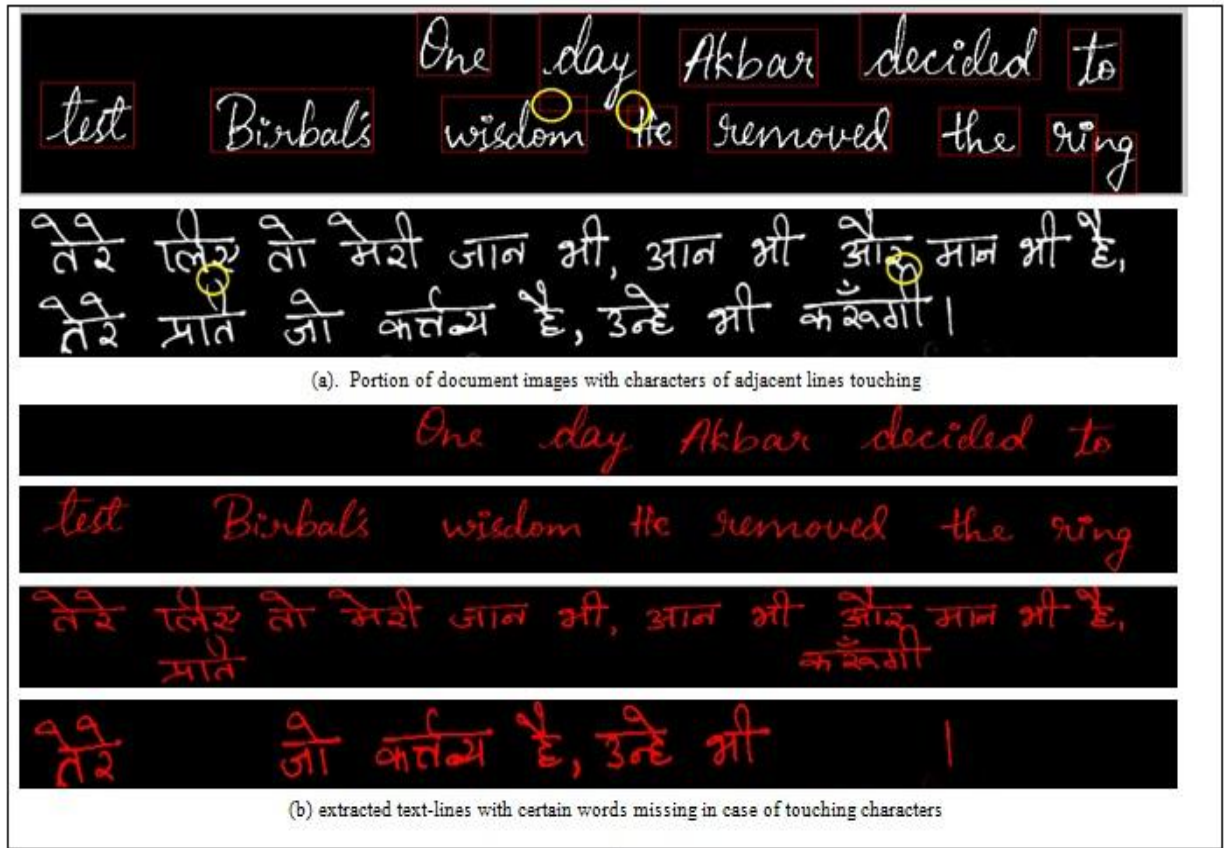 One day Akbar decided to
test Birbal's wisdom He removed the ring
तेरे लिए तो मेरी जान भी, आन भी और मान भी है,
तेरे प्रति जो कर्त्तव्य है, उन्हे भी करूँगी।
(a). Portion of document images with characters of adjacent lines touching
One day Akbar decided to
test Birbal's wisdom He removed the ring
तेरे लिए तो मेरी जान भी, आन भी और मान भी है,
प्रति करूँगी
तेरे जो कर्त्तव्य है, उन्हे भी ।
(b) extracted text-lines with certain words missing in case of touching characters